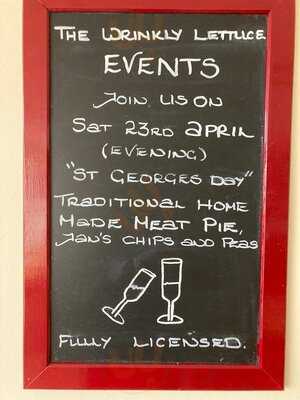 THE WRINKLY LETTUCE
EVENTS
JOIN US ON
SAT 23RD APRIL
(EVENING)
"ST GEORGES DAY"
TRADITIONAL HOME
MADE MEAT PIE,
JAN'S CHIPS AND PEAS
FULLY LICENSED.